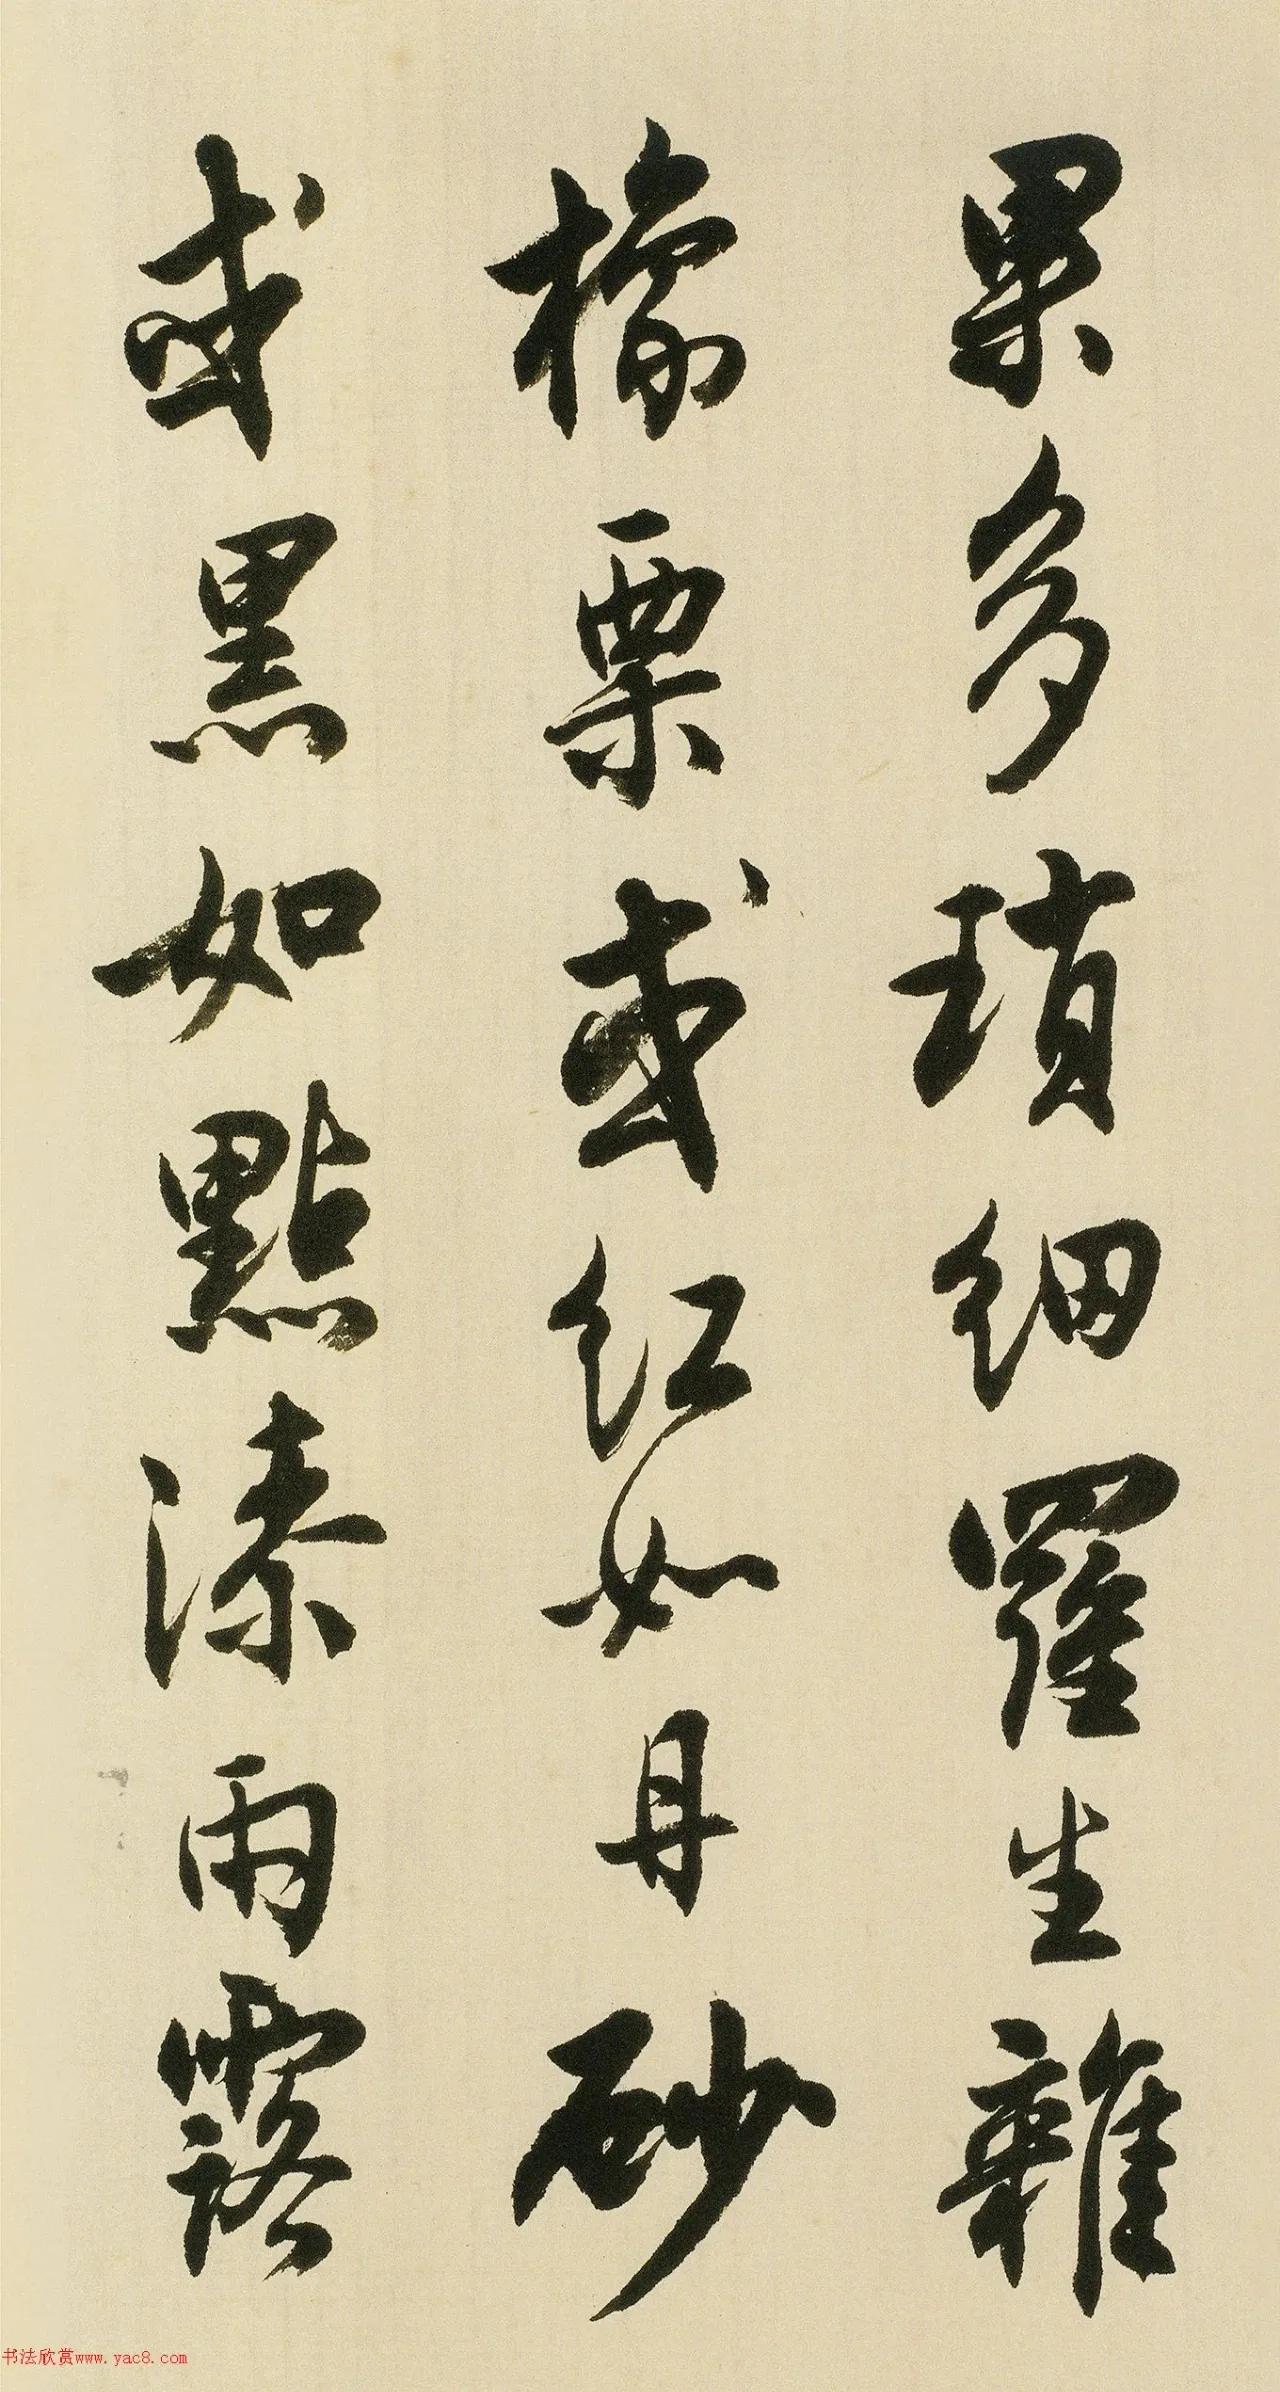 果多瑣細羅生雜
橡栗或红如丹砂
或黑如點漆雨露
书法欣赏www.yac8.com